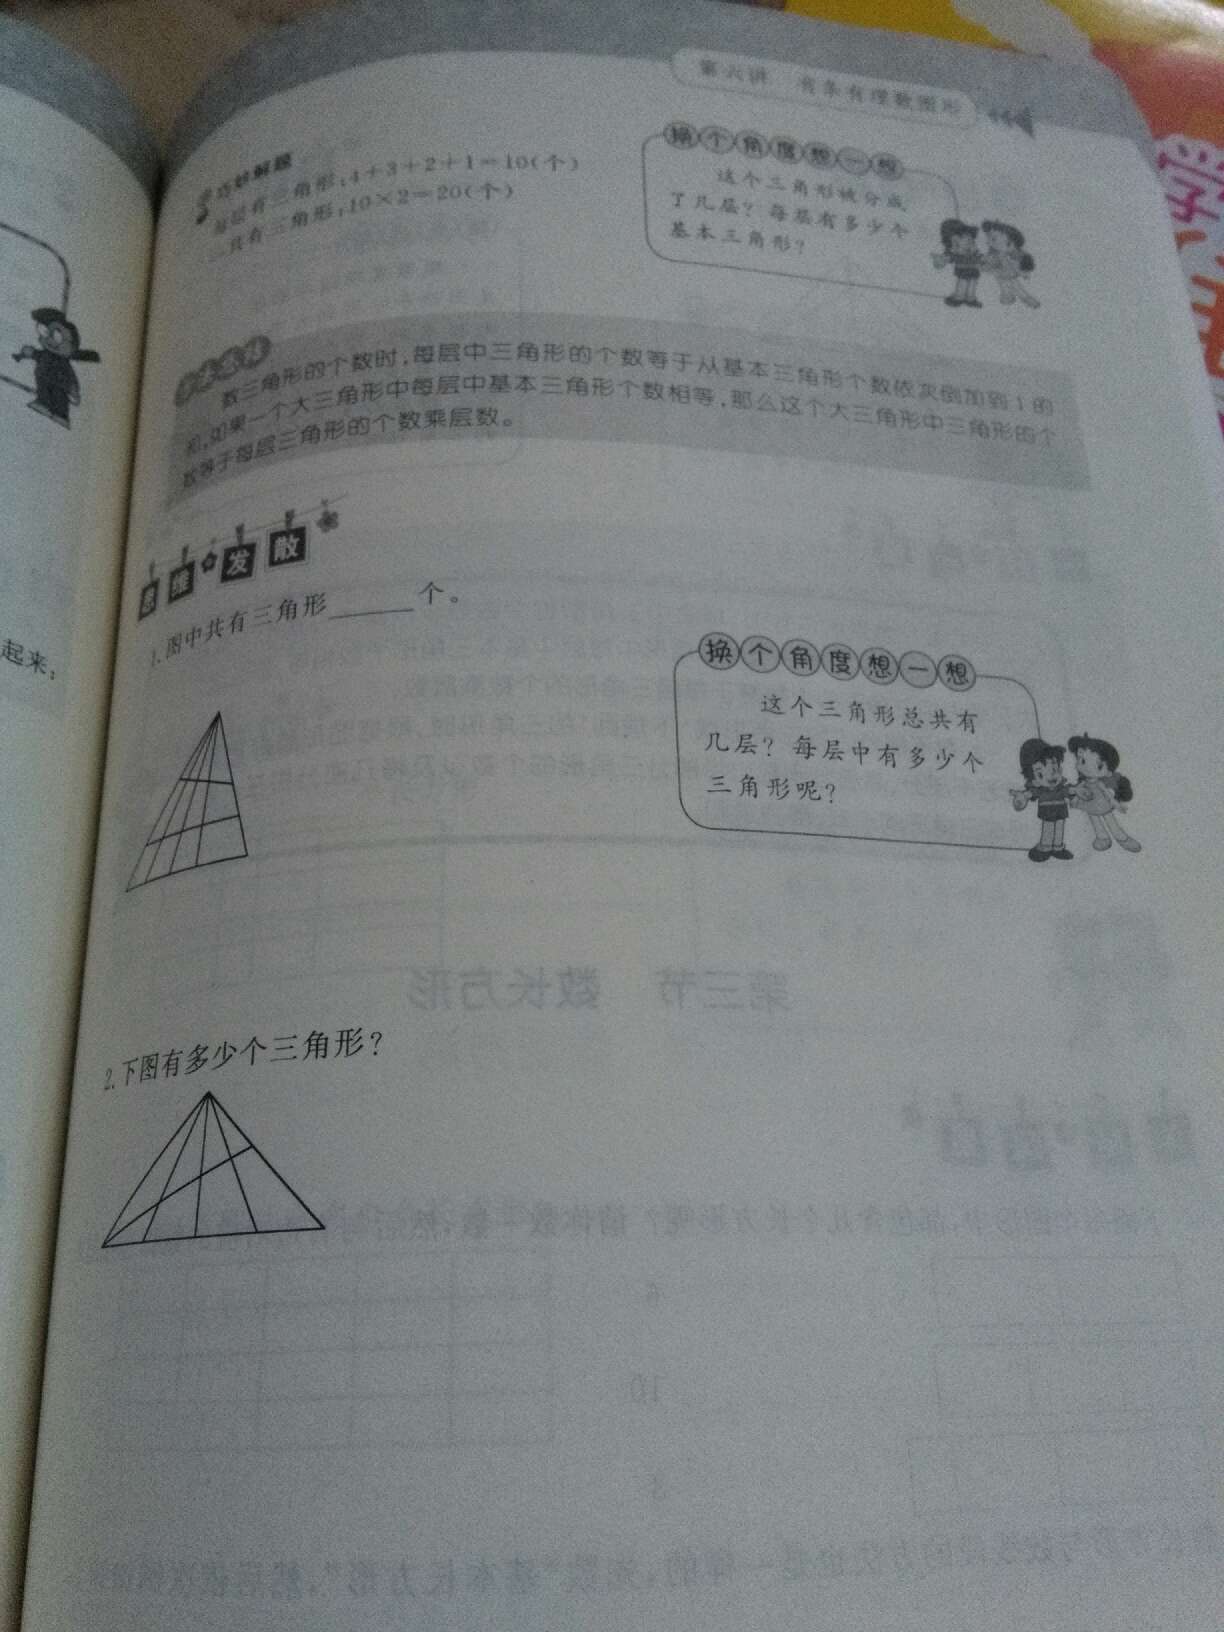 第六讲 有条有理数图形
巧妙解题
每层有三角形:4+3+2+1=10(个)
一共有三角形:10×2=20(个)
换个角度想一想
这个三角形被分成
了几层？每层有多少个
基本三角形？
数三角形的个数时,每层中三角形的个数等于从基本三角形个数依次倒加到1的
和,如果一个大三角形中每层中基本三角形个数相等,那么这个大三角形中三角形的个
数等于每层三角形的个数乘层数。
思维发散
1.图中共有三角形______个。
换个角度想一想
这个三角形总共有
几层？每层中有多少个
三角形呢？
起来:
2.下图有多少个三角形？